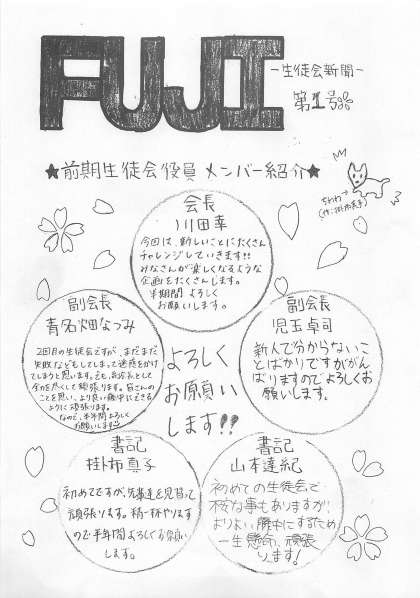 FUJI
－生徒会新聞－
第1号
★前期生徒会役員メンバー紹介★
ちわわ
会長
川田幸
今回は、新しいことにたくさん
チャレンジしていきます!!
みなさんが楽しくなるような
企画をたくさんします。
半期間よろしく
お願いします。
副会長
青名畑なつみ
2回目の生徒会ですが、まだまだ
失敗などもしてしまって迷惑をかけ
てしまうと思います。でも、副会長として
全力を尽くして頑張ります。皆さんの
ことを思い、より良い藤中にできる
ように頑張ります。
なので、半年間よろしく
お願いします
副会長
児玉卓司
新人で分からないこ
とばかりですががん
ばりますのでよろしくお
願いします。
よろしく
お願い
します!!
書記
掛布真子
初めてですが、先輩達を見習って
頑張ります。精一杯やります
ので半年間よろしくお願い
します。
書記
山本達紀
初めての生徒会で
不安な事もありますが、
よりよい藤中にするため
一生懸命、頑張
ります!